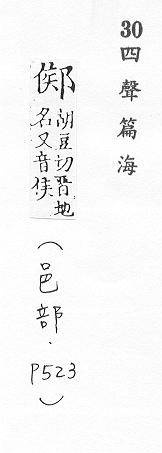 30四聲篇海
鄇胡豆切晉地
名又音侯
(邑部·P523)